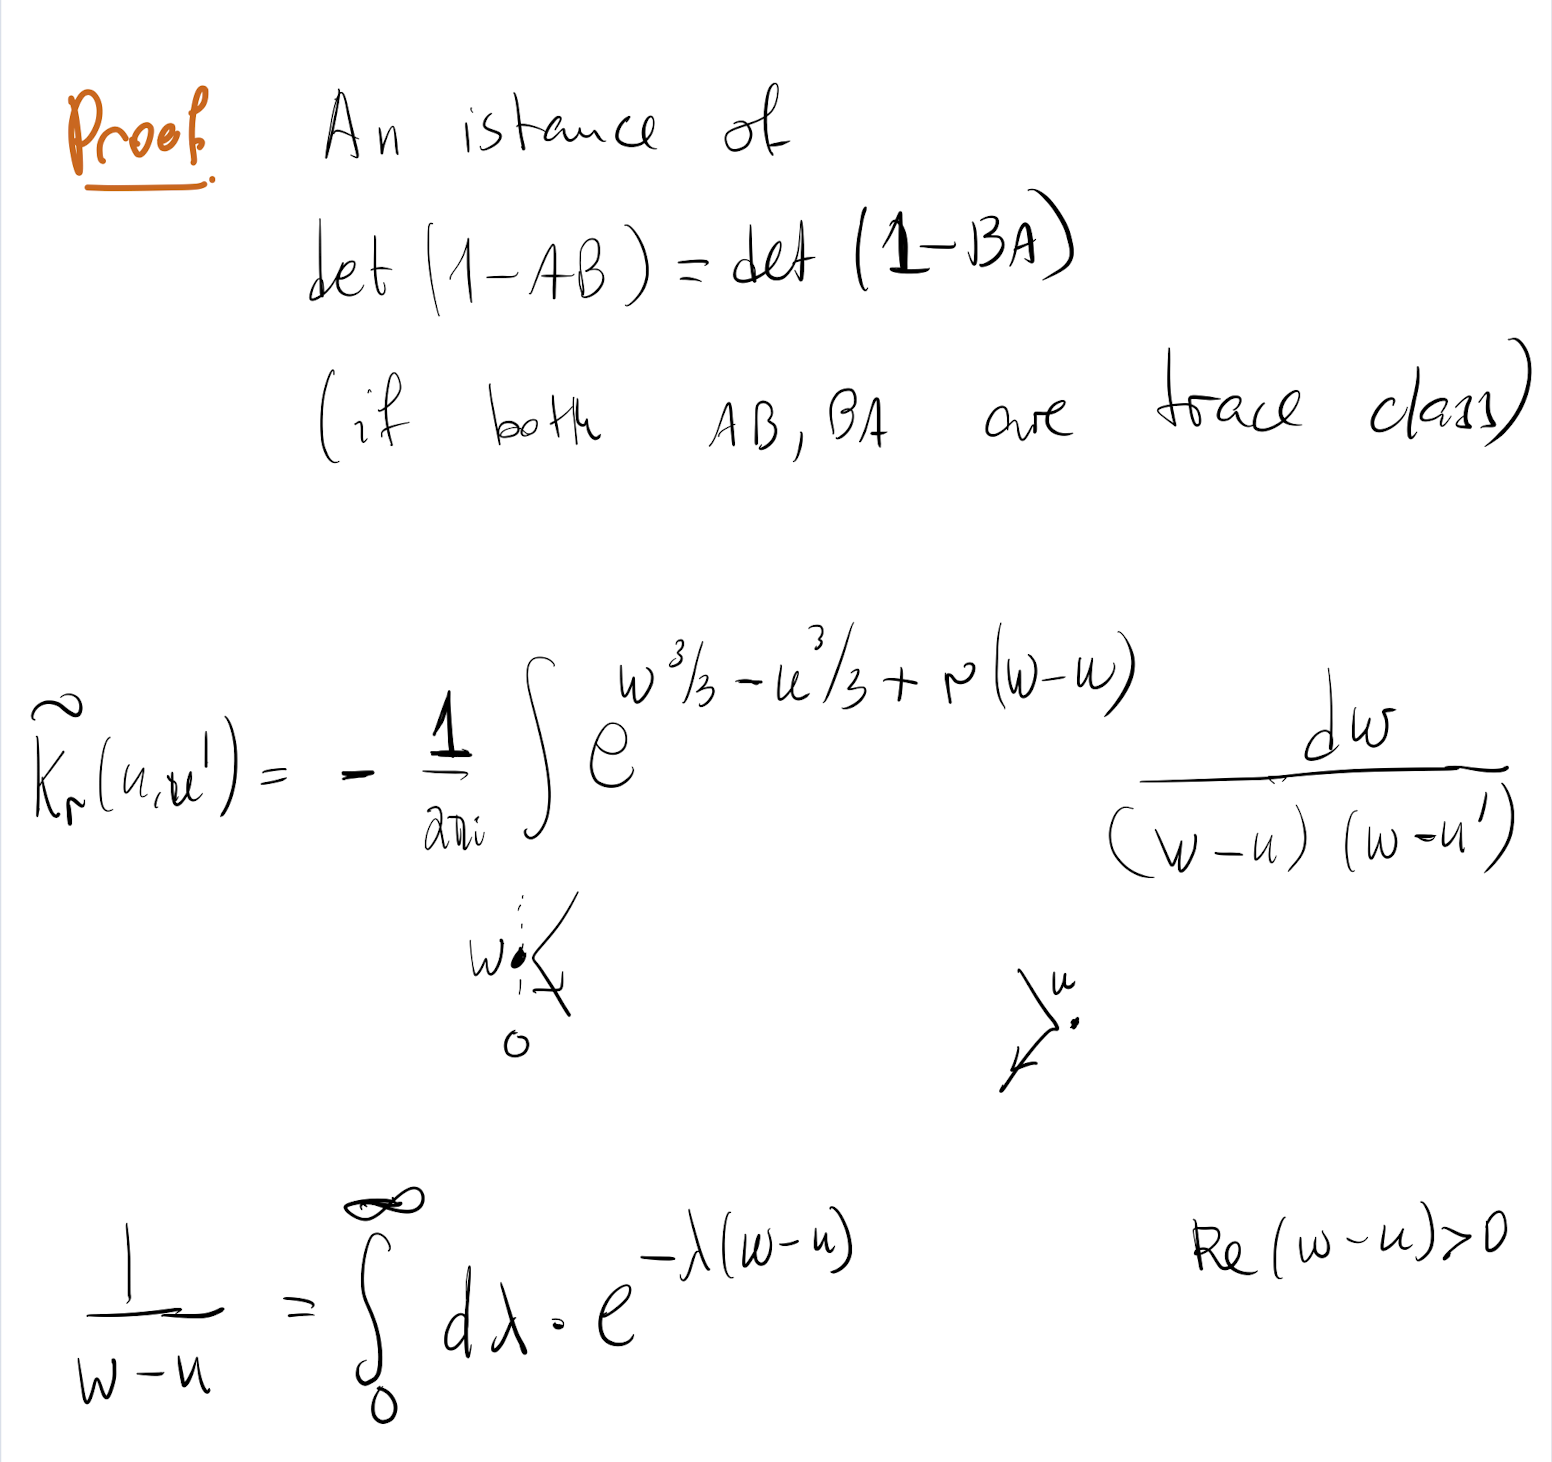 Proof. An istance of
det (1-AB) = det (1-BA)
(if both AB, BA are trace class)
K̃_r(u,u') = - 1/2πi ∫ e^{w³/3 - u³/3 + r(w-u)} dw/((w-u)(w-u'))
w 0
u
1/(w-u) = ∫_0^∞ dλ · e^{-λ(w-u)} Re(w-u)>0